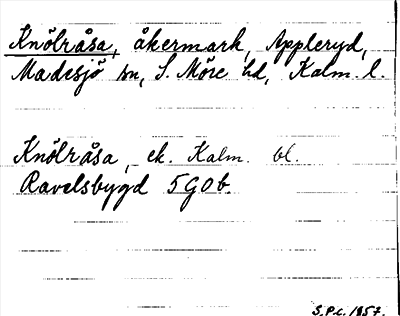 Knölråsa, åkermark, Appleryd,
Madesjö sn, S. Möre hd, Kalm. l.
Knölråsa, ek. Kalm. bl.
Ravelsbygd 5G0b.
S.P.c. 1857.